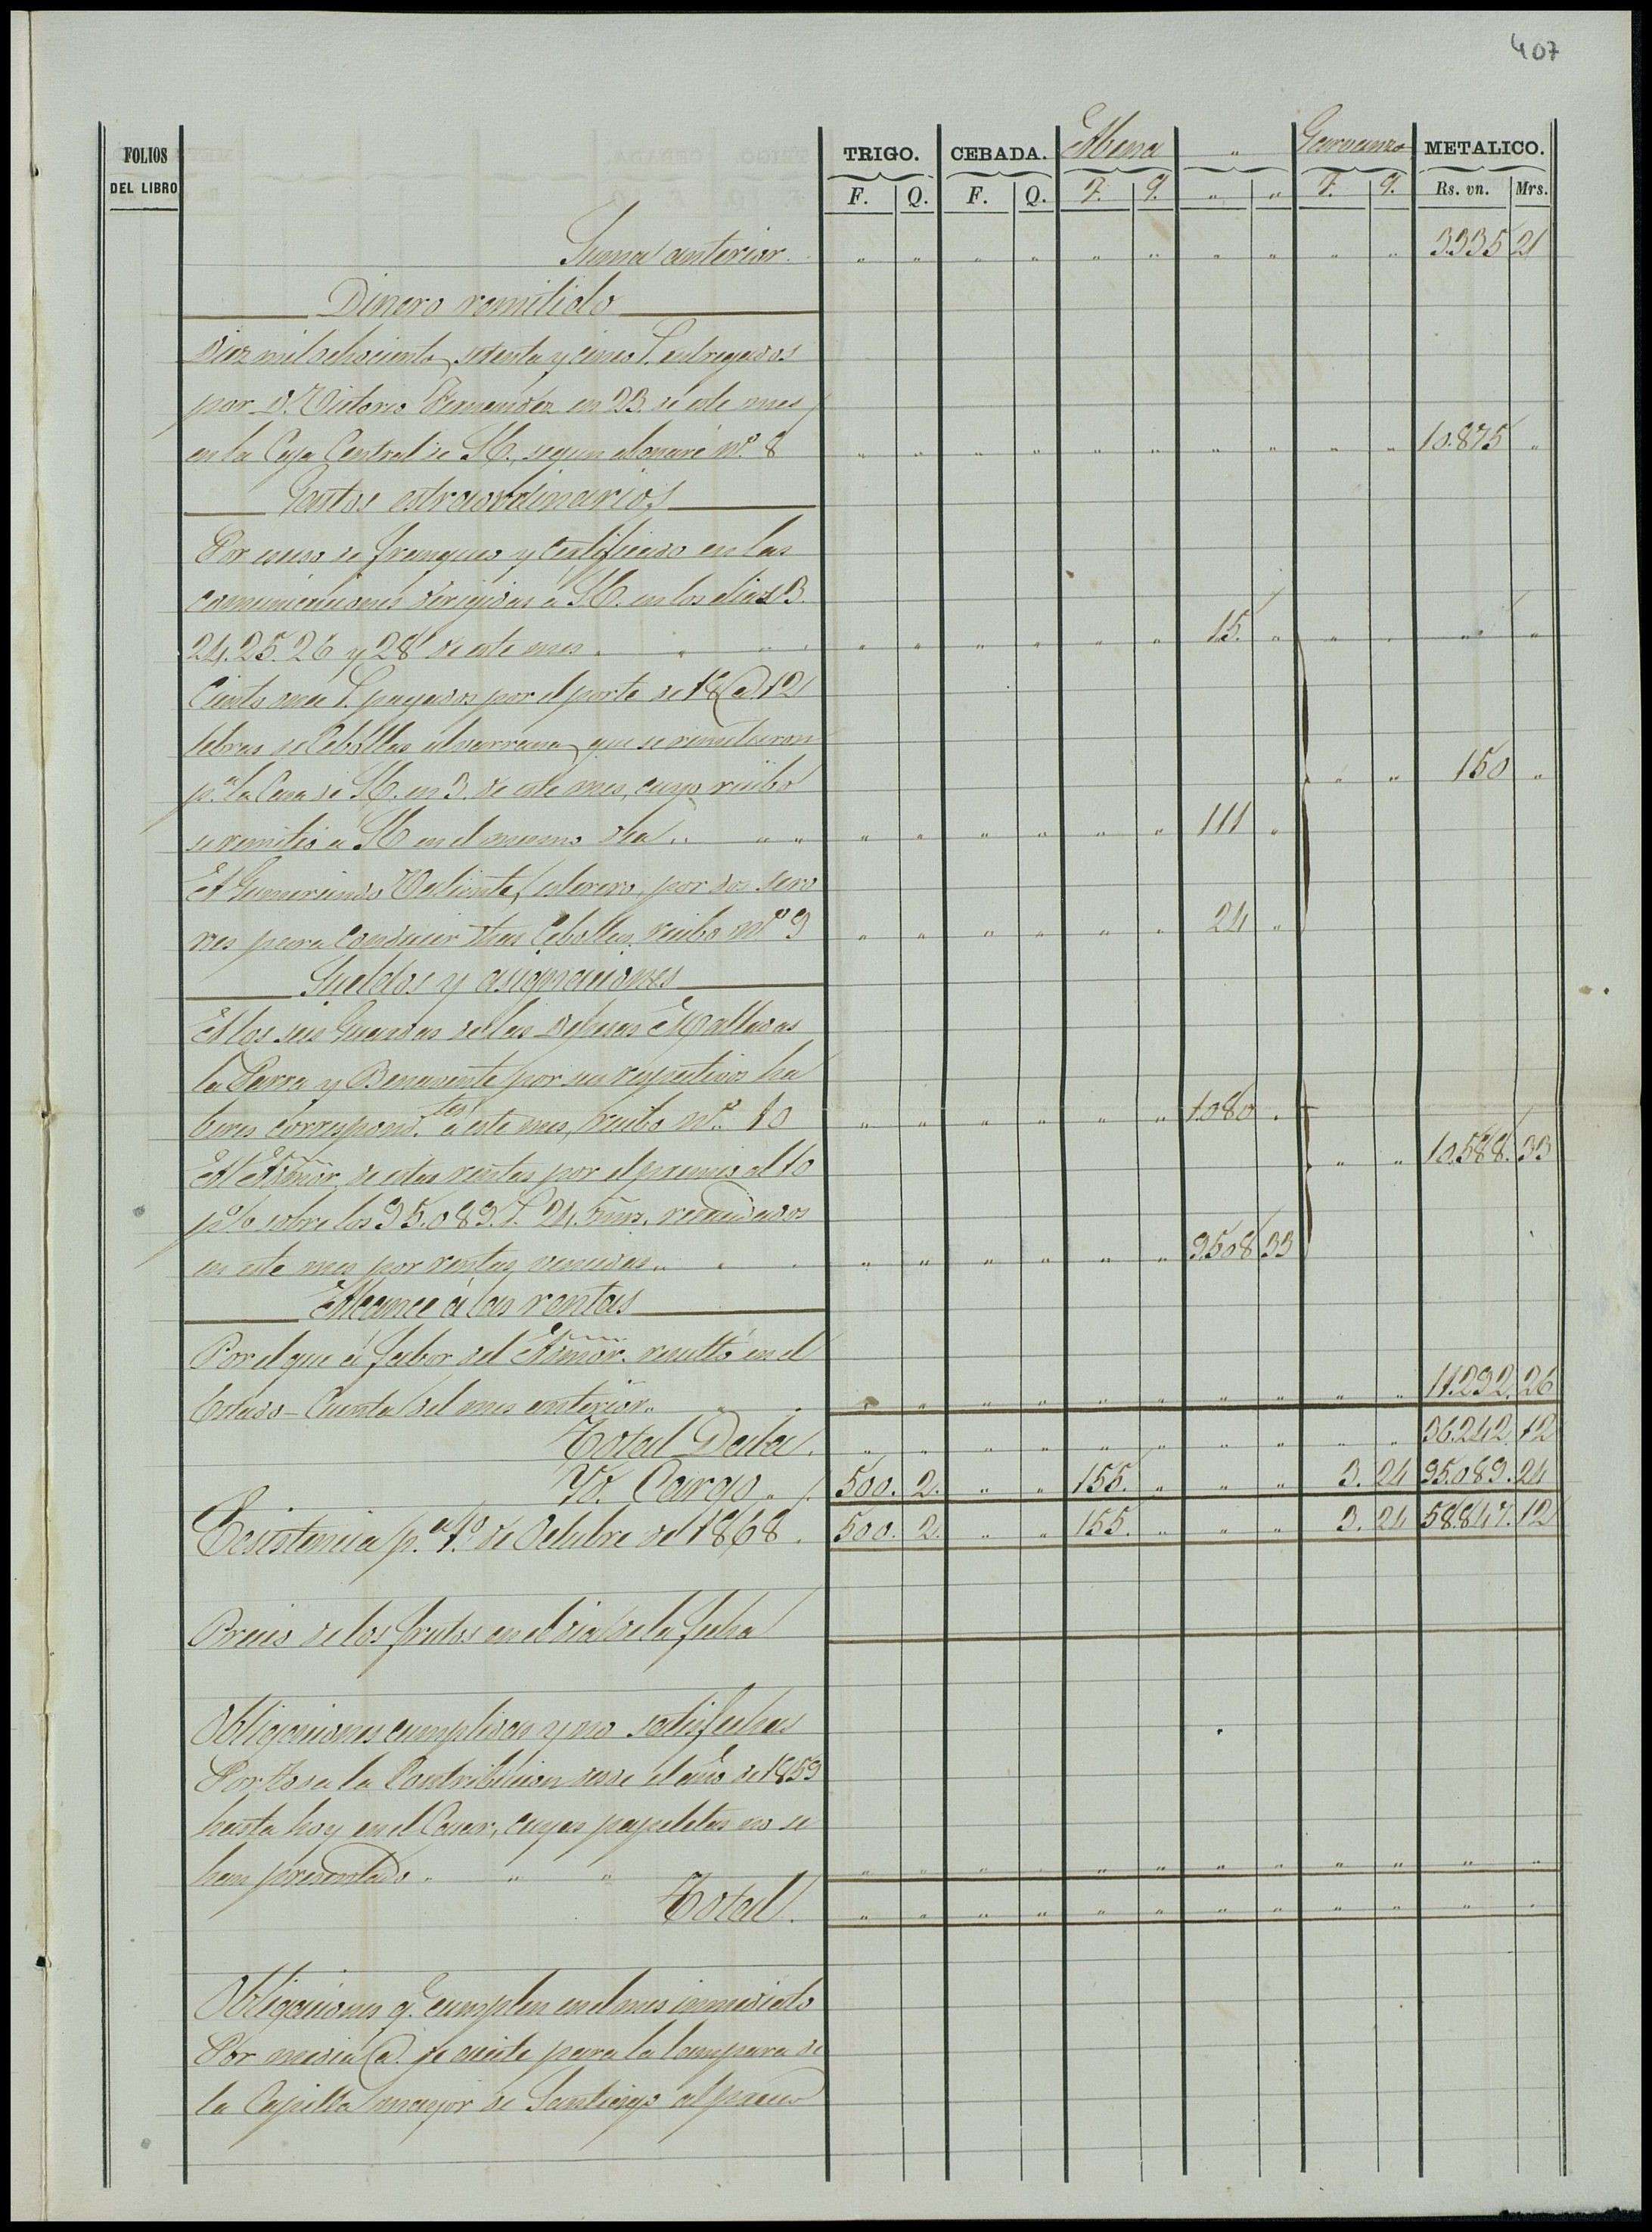 407
FOLIOS DEL LIBRO TRIGO. CEBADA. Abena " Garvanzo METALICO.
F. Q. F. Q. F. q. " " F. q. Rs. vn. Mrs.
Suma anterior. " " " " " " " " " " 3335 21
Dinero remitido
Diez mil ochocientos setenta y cinco r. entregados
por D. Victorio Fernandez en 23 de este mes
en la Caja Central de SE., segun abonaré nº 8 " " " " " " " " " " 10.875 "
Gastos estraordinarios
Por esceso de franqueo y certificado en las
comunicaciones dirijidas á SE. en los dias 3.
24. 25. 26 y 28 de este mes " " " " " " " 15. " " " " "
Ciento once r. pagados por el porte de 18 @ 12
libras de Cebollas albarrana que se remitieron
p.ª la Casa de SE. en 3. de este mes, cuyo recibo " " 150 "
se remitió á SE en el mismo dia " " " " " " " " 111 "
A Gumersindo Valiente, esterero, por dos sero
nes para conducir dhas Cebollas, recibo nº 9 " " " " " " 24 "
Sueldos y asignaciones
A los seis Guardas de las dehesas
la Parra y Benavente por sus respectivos ha
beres correspond.tes á este mes, recibo nº 10 " " " " " " 1080 "
Al Admor. de estas rentas por el premio al 10 " " 10.588. 33
p% sobre los 95.089. r. 24. mrs. recaudados
en este mes por rentas vencidas " " " " " " " " 9508 33
Alcance á las rentas
Por el que á fabor del Admor. resultó en el
Estado-Cuenta del mes anterior " " " " " " " " " " 11.292. 26
Total Data. " " " " " " " " " " 36.242. 12
Yd. Cargo " 500. 2. " " 155. " " " 3. 24 95.089. 24
Ecsistencia p.ª 1º de Octubre de 1868. 500. 2. " " 155. " " " 3. 24 58.847. 12
Precio de los frutos en el dia de la fecha
Obligaciones cumplidas y no satisfechas
Por toda la Contribucion desde el año de 1859
hasta hoy en el Casar, cuyas papeletas no se
han presentado " " " " " " " " " " " " " " "
Total. " " " " " " " " " " " "
Obligaciones q.e cumplen en el mes inmediato
Por media @. de aceite para la lampara de
la Capilla mayor de Santiago al precio